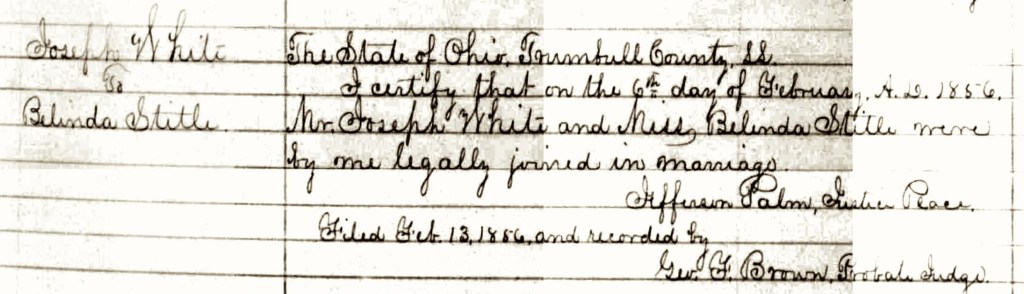 Joseph White
To
Belinda Stitle.
The State of Ohio, Trumbull County, SS.
I certify that on the 6th day of February, A.D. 1856,
Mr. Joseph White and Miss, Belinda Stitle were
by me legally joined in marriage.
Jefferson Palm, Justice Peace.
Filed Feb. 13, 1856, and recorded by
Geo. F. Brown, Probate Judge.